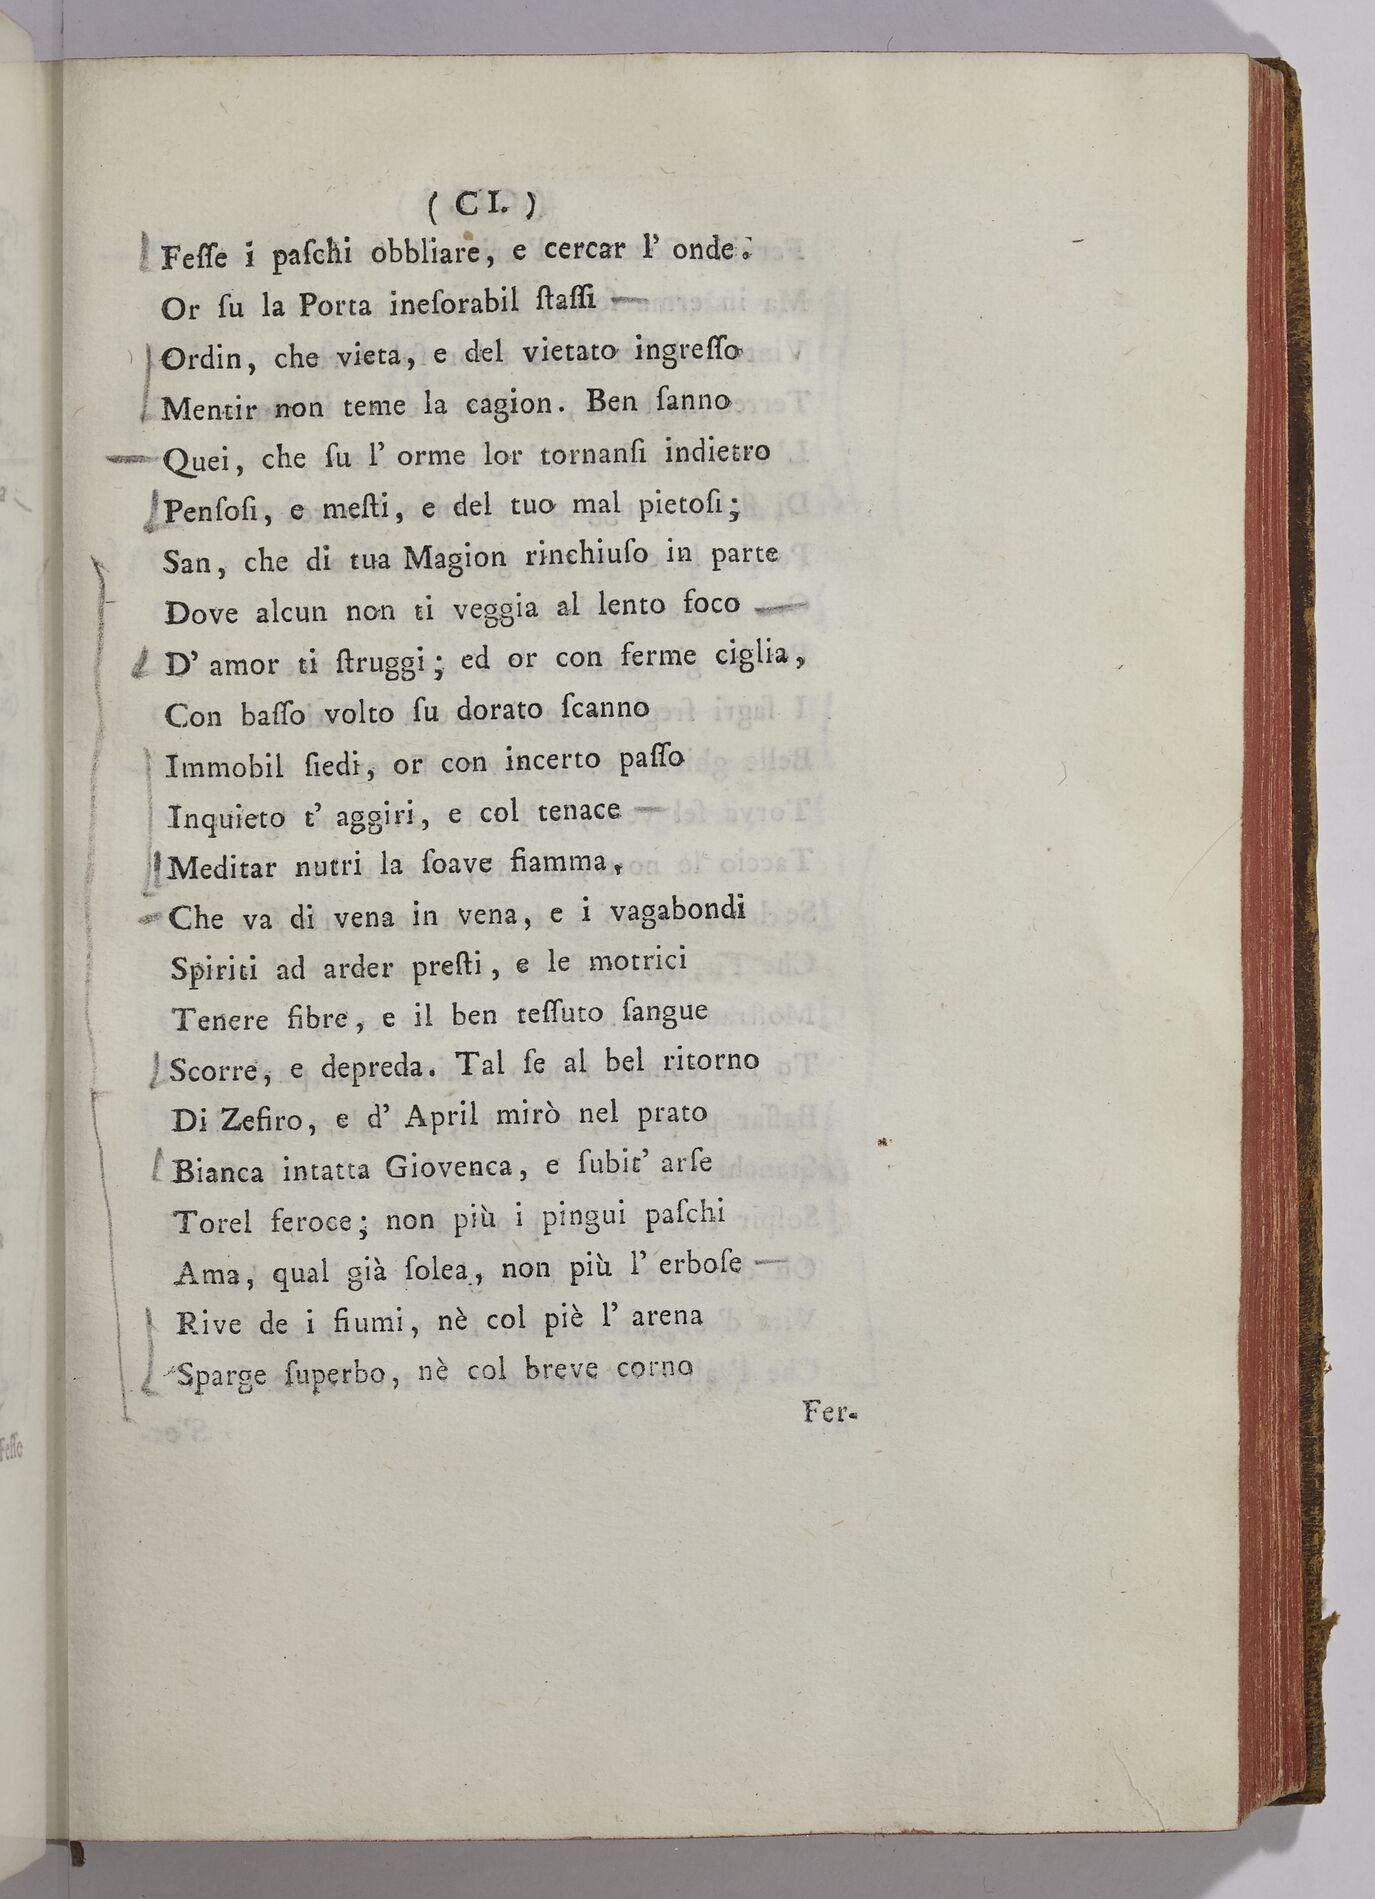 ( CI. )
Feſſe i paſchi obbliare, e cercar l' onde.
Or ſu la Porta ineſorabil ſtaſſi
Ordin, che vieta, e del vietato ingreſſo
Mentir non teme la cagion. Ben ſanno
Quei, che ſu l' orme lor tornanſi indietro
Penſoſi, e meſti, e del tuo mal pietoſi;
San, che di tua Magion rinchiuſo in parte
Dove alcun non ti veggia al lento foco
D' amor ti ſtruggi; ed or con ferme ciglia,
Con baſſo volto ſu dorato ſcanno
Immobil ſiedi, or con incerto paſſo
Inquieto t' aggiri, e col tenace
Meditar nutri la ſoave fiamma,
Che va di vena in vena, e i vagabondi
Spiriti ad arder preſti, e le motrici
Tenere fibre, e il ben teſſuto ſangue
Scorre, e depreda. Tal ſe al bel ritorno
Di Zefiro, e d' April mirò nel prato
Bianca intatta Giovenca, e ſubit' arſe
Torel feroce; non più i pingui paſchi
Ama, qual già ſolea, non più l' erboſe
Rive de i fiumi, nè col piè l' arena
Sparge ſuperbo, nè col breve corno
Fer-